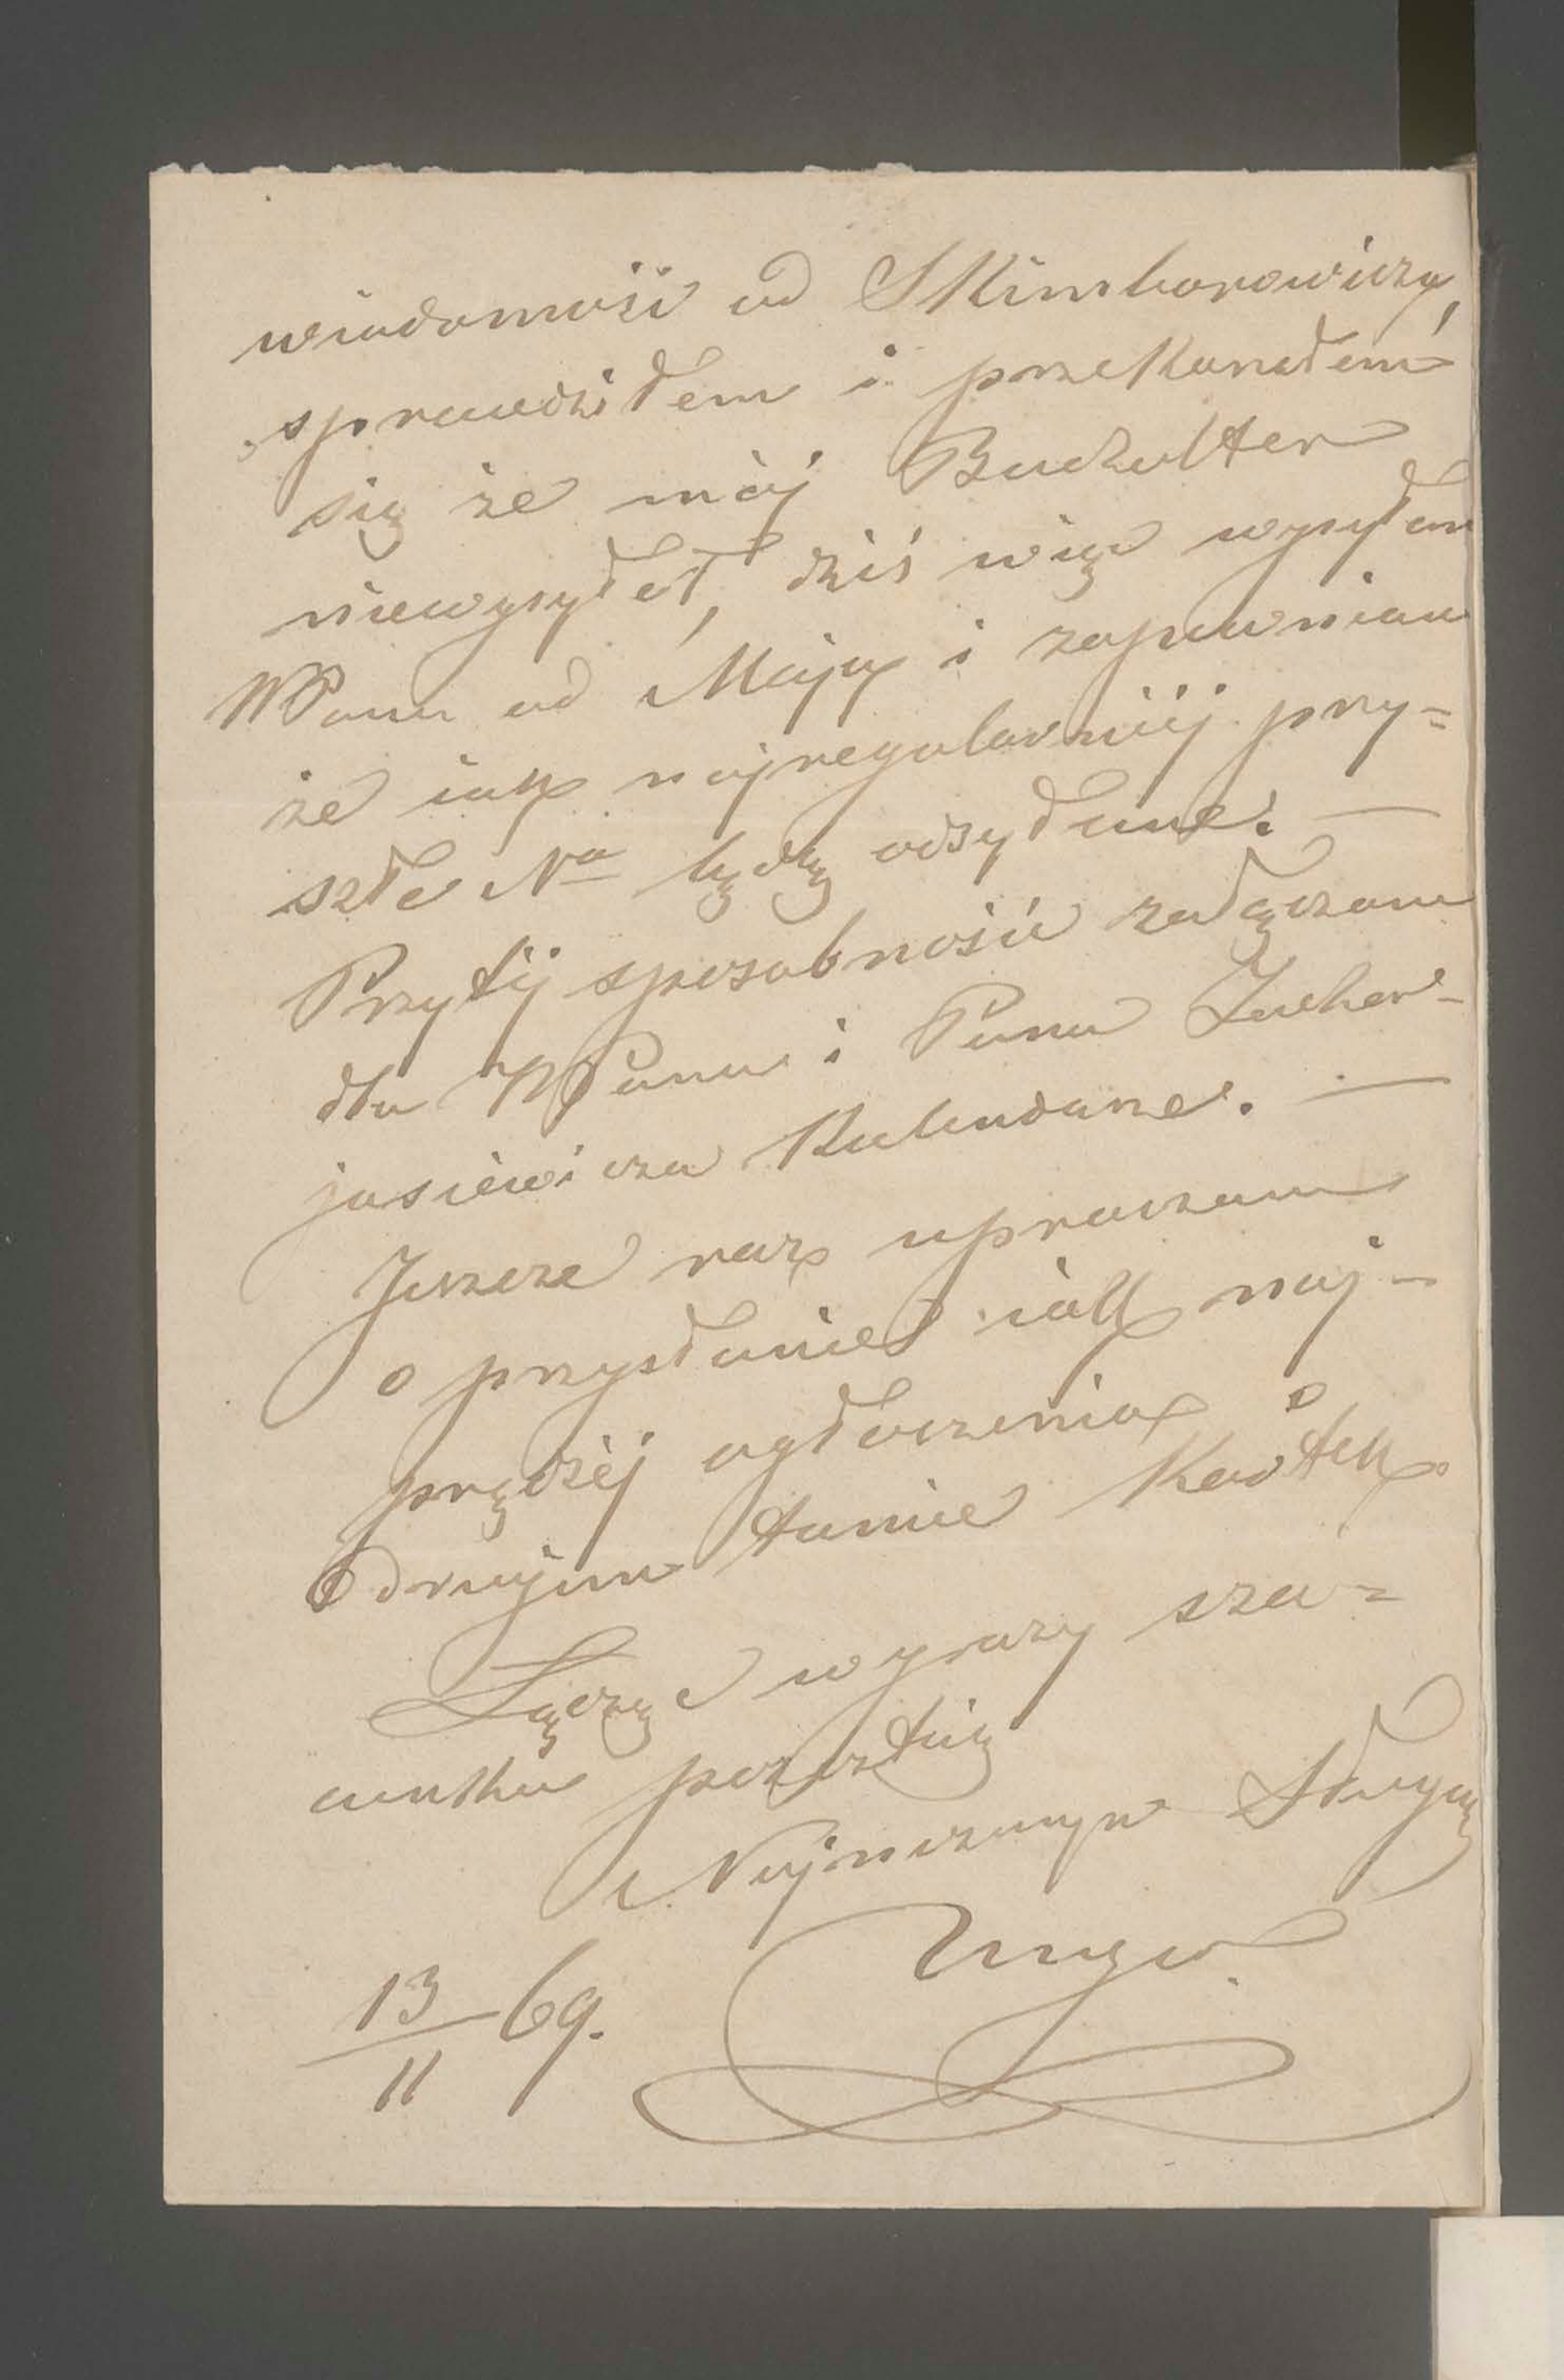 wiadomość od Skimborowicza,
sprawdziłem i przekonałem
się że mój Buchalter
niewysyłał, dziś więc wysyłam
WPanu od Maja i zapewniam
że iak najregularniéj przy=
szłe Na będą odsyłane. —
Przytéj sposobności załączam
dla WPana i Pana Zachar-
jasiewicza Kalendarze. —
Jeszcze raz upraszam
o przysłanie iak naj-
prędzéj ogłoszenia o
drugim tomie Kartek
Łączę wyrazy sza=
cunku pozostaję
Najniższym Sługą
Unger
13/11 69.